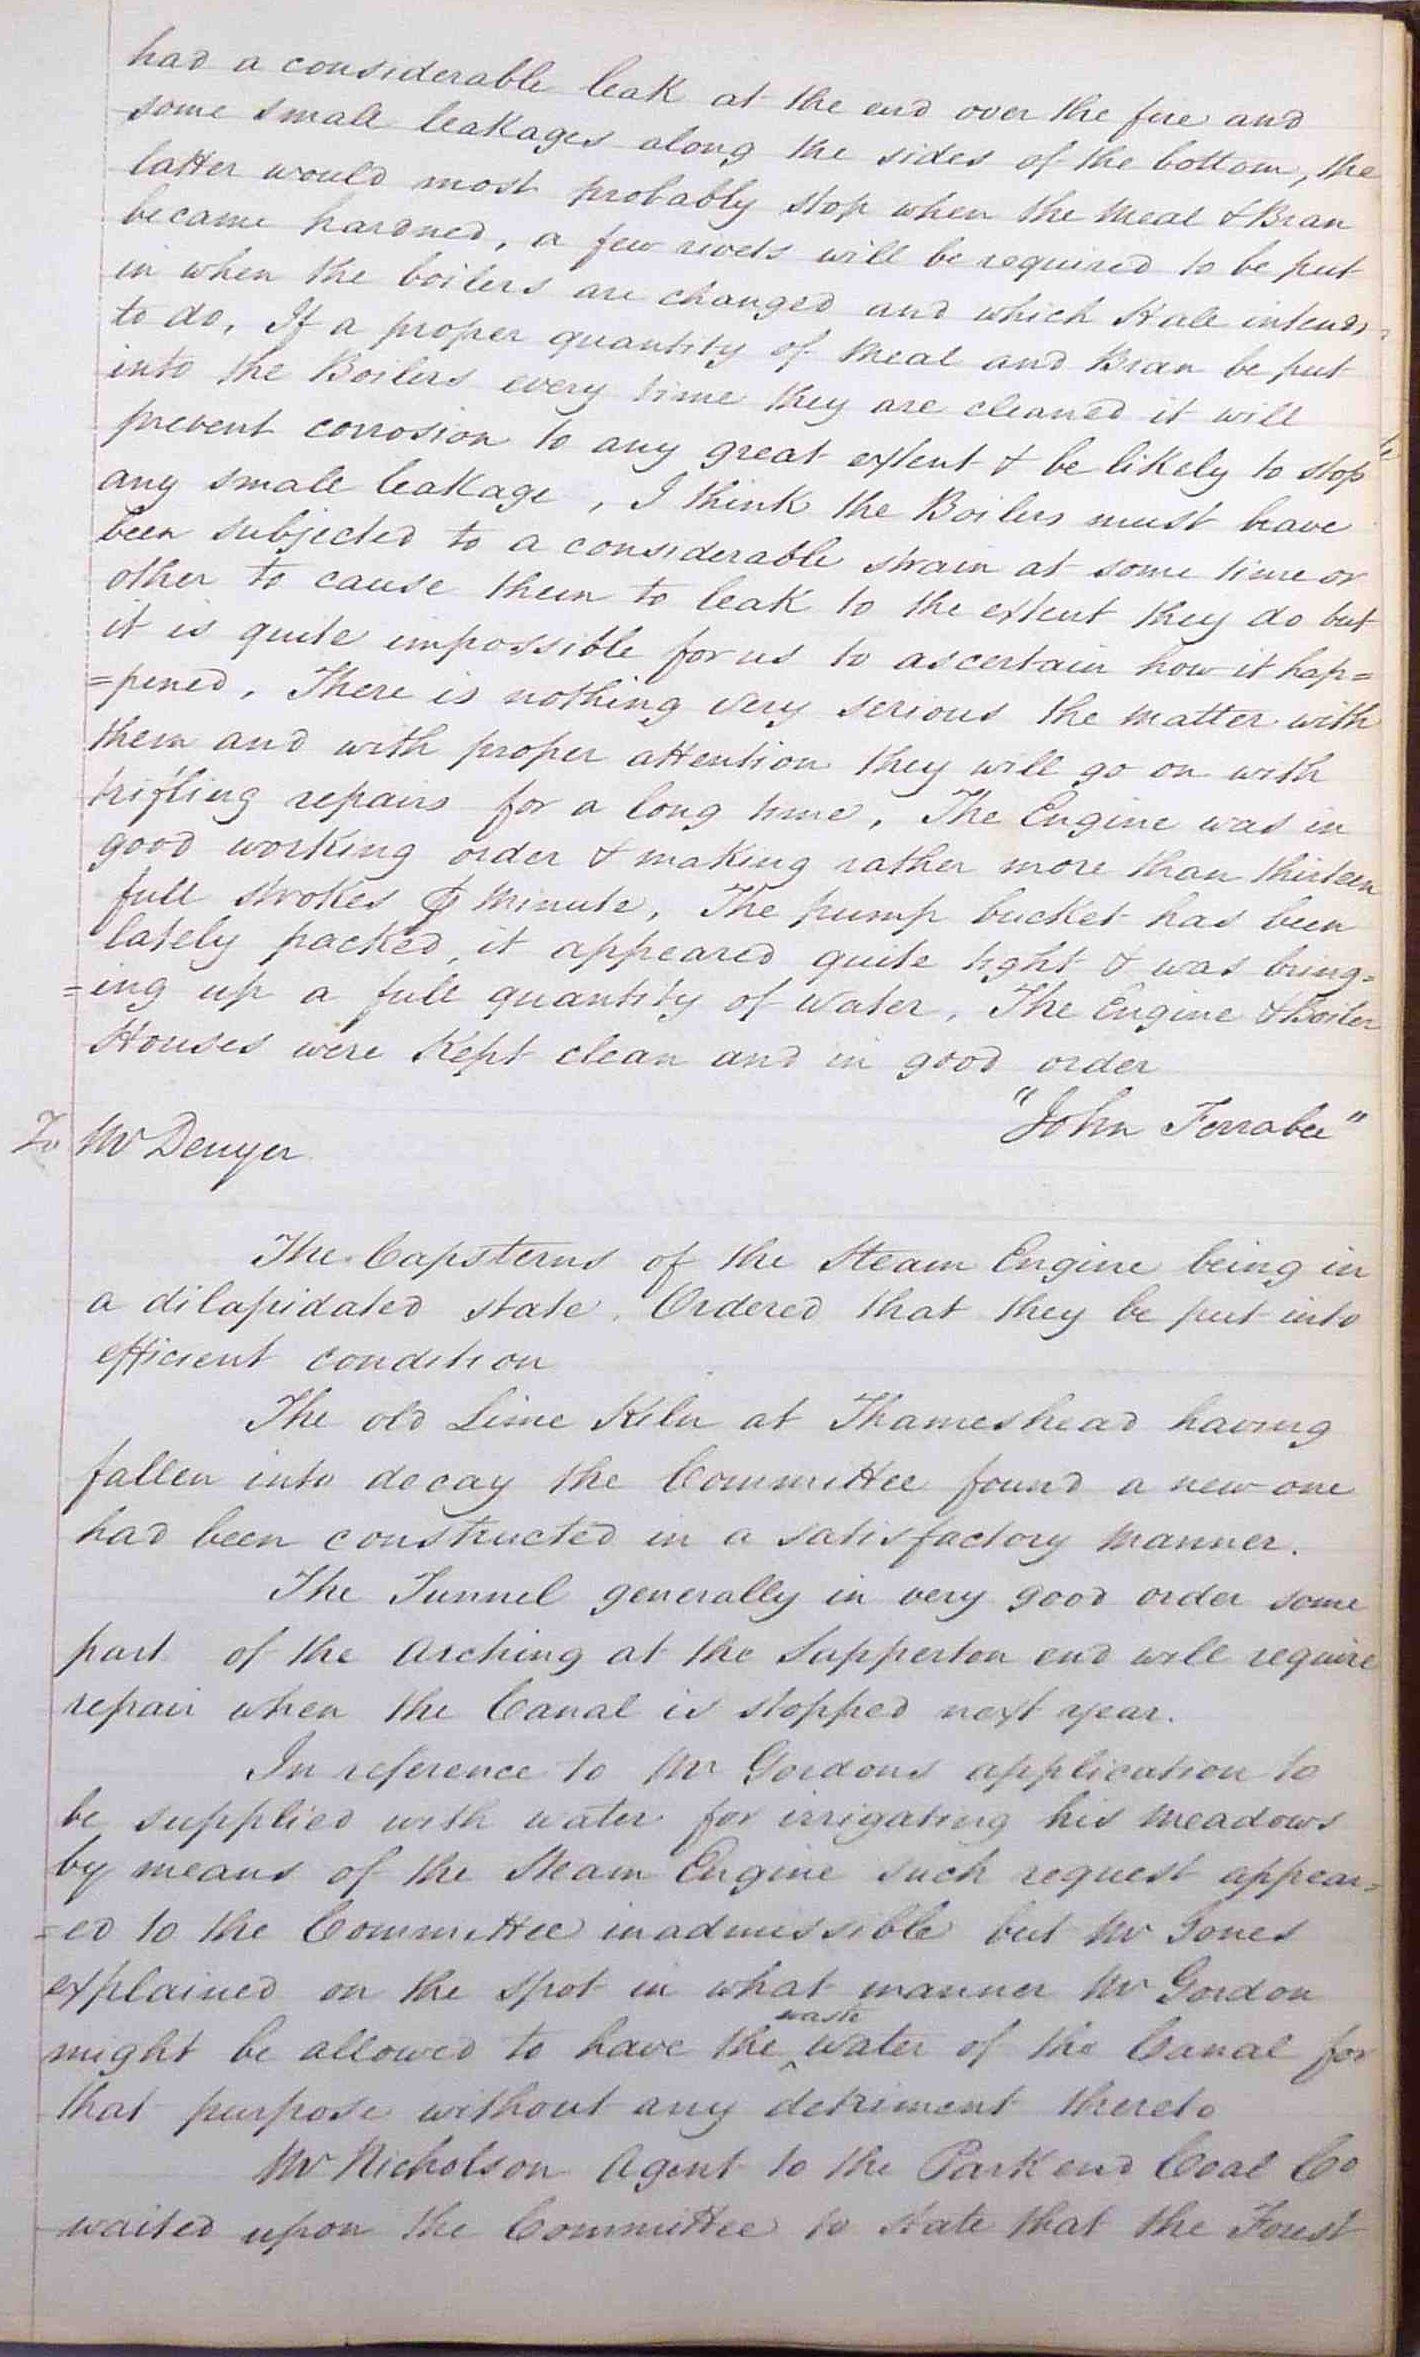 had a considerable leak at the end over the fire and
some small leakages along the sides of the bottom, the
latter would most probably stop when the Meal & Bran
became hardned, a few rivets will be required to be put
in when the boilers are changed and which Hall intends
to do, If a proper quantity of Meal and Bran be put
into the Boilers every time they are cleaned it will
prevent corrosion to any great extent & be likely to stop
any small leakage, I think the Boilers must have
been subjected to a considerable strain at some time or
other to cause them to leak to the extent they do but
it is quite impossible for us to ascertain how it hap=
=pened, There is nothing very serious the matter with
them and with proper attention they will go on with
trifling repairs for a long time, The Engine was in
good working order & making rather more than thirteen
full strokes ⅌ Minute, The pump bucket has been
lately packed, it appeared quite tight & was bring=
=ing up a full quantity of Water, The Engine & Boiler
Houses were Kept clean and in good order
"John Ferrabee"
To Mr Denyer
The Capsterns of the Steam Engine being in
a dilapidated state, Ordered that they be put into
efficient condition
The old Lime Kiln at Thameshead having
fallen into decay the Committee found a new one
had been constructed in a satisfactory manner.
The Tunnel generally in very good order some
part of the Arching at the Sapperton end will require
repair when the Canal is stopped next year.
In reference to Mr Gordons application to
be supplied with water for irrigating his Meadows
by means of the Steam Engine such request appear=
=ed to the Committee inadmissible but Mr Jones
explained on the spot in what manner Mr Gordon
might be allowed to have the ^waste water of the Canal for
that purpose without any detriment thereto
Mr Nicholson Agent to the Parkend Coal Co
waited upon the Committee to state that the Forest